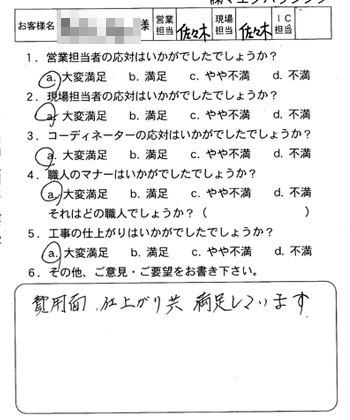 お客様名 様 営業担当 佐々木 現場担当 佐々木 IC担当
1．営業担当者の応対はいかがでしたでしょうか？
a. 大変満足 b. 満足 c. やや不満 d. 不満
2．現場担当者の応対はいかがでしたでしょうか？
a. 大変満足 b. 満足 c. やや不満 d. 不満
3．コーディネーターの応対はいかがでしたでしょうか？
a. 大変満足 b. 満足 c. やや不満 d. 不満
4．職人のマナーはいかがでしたでしょうか？
a. 大変満足 b. 満足 c. やや不満 d. 不満
それはどの職人でしょうか？（ ）
5．工事の仕上がりはいかがでしたでしょうか？
a. 大変満足 b. 満足 c. やや不満 d. 不満
6．その他、ご意見・ご要望をお書き下さい。
費用面、仕上がり共 満足しています